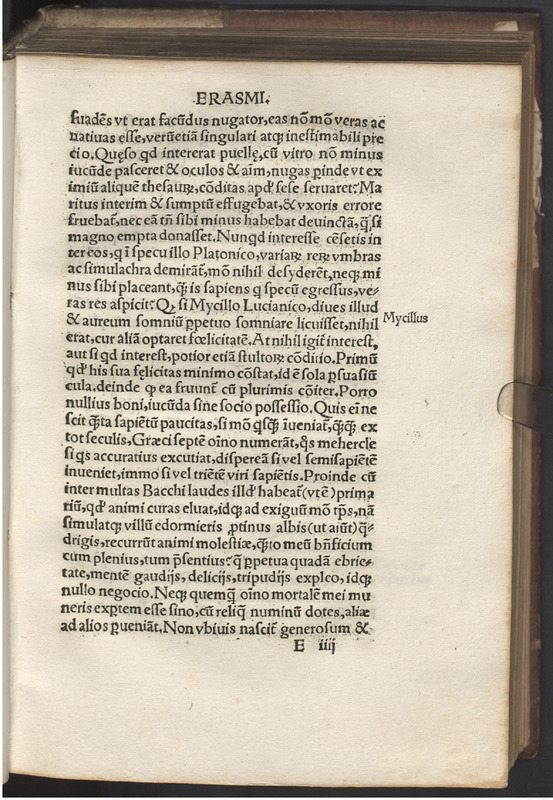 ERASMI.
suadēs vt erat facūdus nugator, eas nō mō veras ac
natiuas esse, verūetiā singulari atqꝫ inestimabili pre
cio. Quęso qd intererat puellę, cū vitro nō minus
iucūde pasceret & oculos & aīm, nugas ꝑinde vt ex
imiū aliquē thesauꝝ, cōditas apd' sese seruaret? Ma
ritus interim & sumptū effugebat, & vxoris errore
fruebat᷑, nec eā tn̄ sibi minus habebat deuinctā, q̄ si
magno empta donasset. Nunqd interesse cēsetis in
ter eos, q̄ i specu illo Platonico, variaꝝ reꝝ vmbras
ac simulachra demirāt᷑, mō nihil desyderēt, neqꝫ mi
nus sibi placeant, q̄ꝫ is sapiens q specū egressus, ve-
ras res aspicit? Qꝫ si Mycillo Lucianico, diues illud
& aureum somniū ꝑpetuo somniare licuisset, nihil
Mycillus
erat, cur aliā optaret fœlicitatē. At nihil igit᷑ interest,
aut si qd interest, potior etiā stultoꝝ cōditio. Primū
qd' his sua felicitas minimo cōstat, id ē sola ꝑsuasiū
cula. deinde ꝙ ea fruunt᷑ cū plurimis cōiter. Porro
nullius boni, iucūda sine socio possessio. Quis ei ne
scit q̄ta sapiētū paucitas, si mō q̄sqꝫ īueniat᷑, q̄qꝫ ex
tot seculis, Græci septē oīno numerāt, q̄s mehercle
si q̄s accuratius excutiat, dispereā si vel semisapiētē
inueniet, immo si vel triētē viri sapiētis. Proinde cū
inter multas Bacchi laudes illd' habeat᷑ (vt ē) prima
riū, qd' animi curas eluat, idqꝫ ad exiguū mō tp̄s, nā
simulatqꝫ villū edormieris ꝓtinus albis (ut aiūt) q̄-
drigis, recurrūt animi molestiæ, q̄ꝫto meū bn̄ficium
cum plenius, tum p̄sentius? q̄ ꝑpetua quadā ebrie-
tate, mentē gaudijs, delicijs, tripudijs expleo, idqꝫ
nullo negocio. Neqꝫ quemq̄ oīno mortalē mei mu
neris exꝑtem esse sino, cū reliq̄ numinū dotes, aliæ
ad alios ꝑueniāt. Non vbiuis nascit᷑ generosum &
E iiij